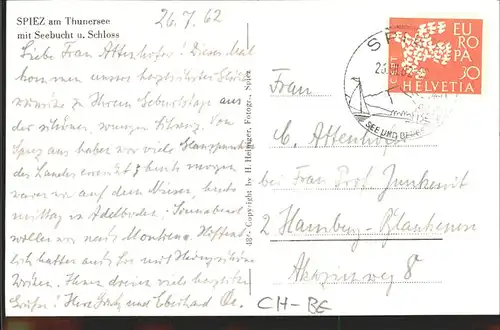 SPIEZ am Thunersee
mit Seebucht u. Schloss
26.7.62
Liebe Frau Attenhofer! Dieses Mal
kommen unsere herzlichsten Glück
wünsche zu Ihrem Geburtstage aus
der schönen, Schweiz. Von
Spiez aus haben wir viel
des Landes heute morgen
waren wir auf dem Niesen, heute
mittag in Adelboden. Sonnabend
wollen wir nach Montreux. Hoffent
lich hatten auch Sie
Ihnen dreien viele herzliche
Grüße! Ihre und Eberhard
48 - Copyright by H. Heiniger, Fotogr., Spiez
SPIEZ
26.VII.62
SEE UND BERGE
EUROPA
50
HELVETIA
Frau
C. Attenhofer
bei Frau Prof. Junkersit
2 Hamburg-Blankenese
Akazienweg 8
CH-BE